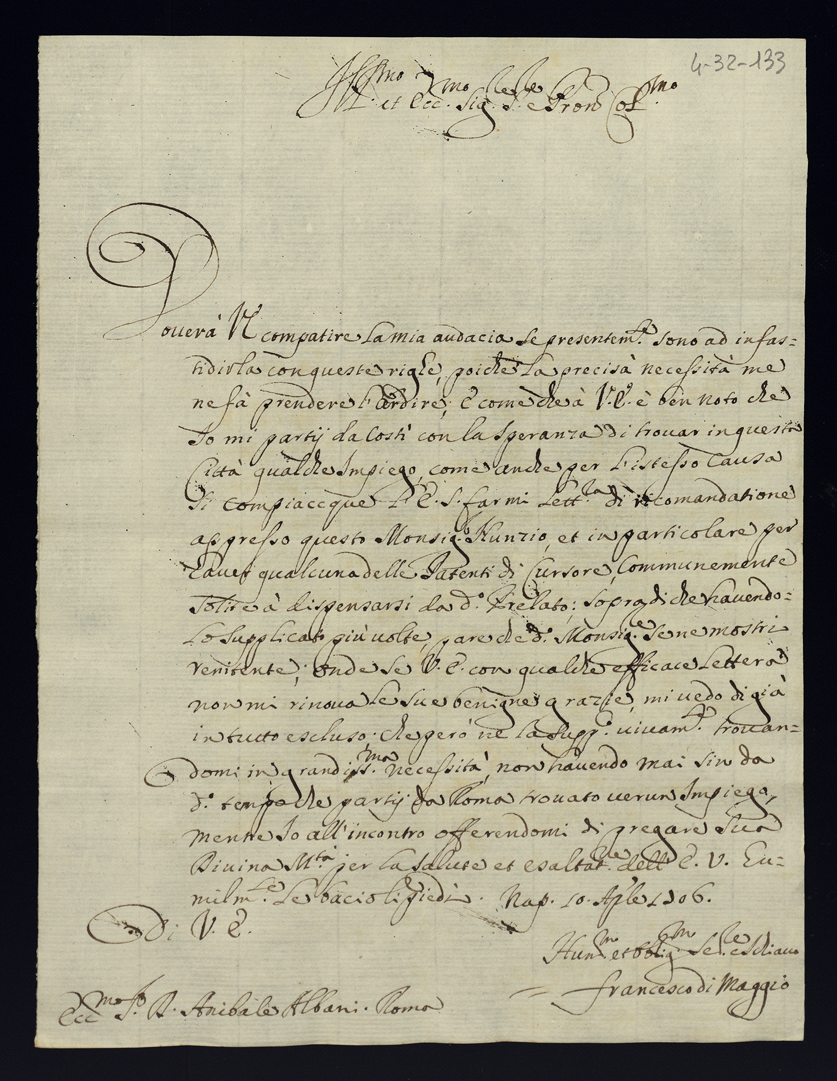 4-32-133
Ill.mo et Ecc.mo Sig.re S.re e Pron Col.mo
Douerà V.E. compatire la mia audacia se presentem.te sono ad infas=
tidirla con queste righe, poiche la precisa necessità me
ne fà prendere l'ardire; E come che à V.E. è ben noto che
Io mi partij da Costì con la speranza di trouar in questa
Città qualche Impiego, come anche per l'istesso Causa
si compiacque l'E.S. farmi lett.ra di ricomandatione
appresso questo Monsig.r Nunzio, et in particolare per
hauer qualcuna delle Patenti di Cursore, Communemente
solite à dispensarsi da d.o Prelato; sopra di che hauendo=
lo supplicato più uolte, pare che d.o Monsig.re se ne mostri
renitente; onde se V.E. con qualche efficace lettera
non mi rinoua le sue benigne grazie, mi uedo di già
in tutto escluso: che però ne la supp.o uiuam.te trouan=
domi in grandiss.ma necessità, non hauendo mai sin da
d.o tempo che partij da Roma trouato uerun Impiego,
mentre Io all'incontro offerendomi di pregare Sua
Diuina M.tà per la salute et esaltat.ne dell'E.V. Eu=
milm.te le bacio li piedi. Nap. 10. Aple 1706.
Di V.E.
Hum.mo et oblig.mo Se.re e Schiauo
Francesco di Maggio
Ecc.mo S.r D. Anibale Albani. Roma